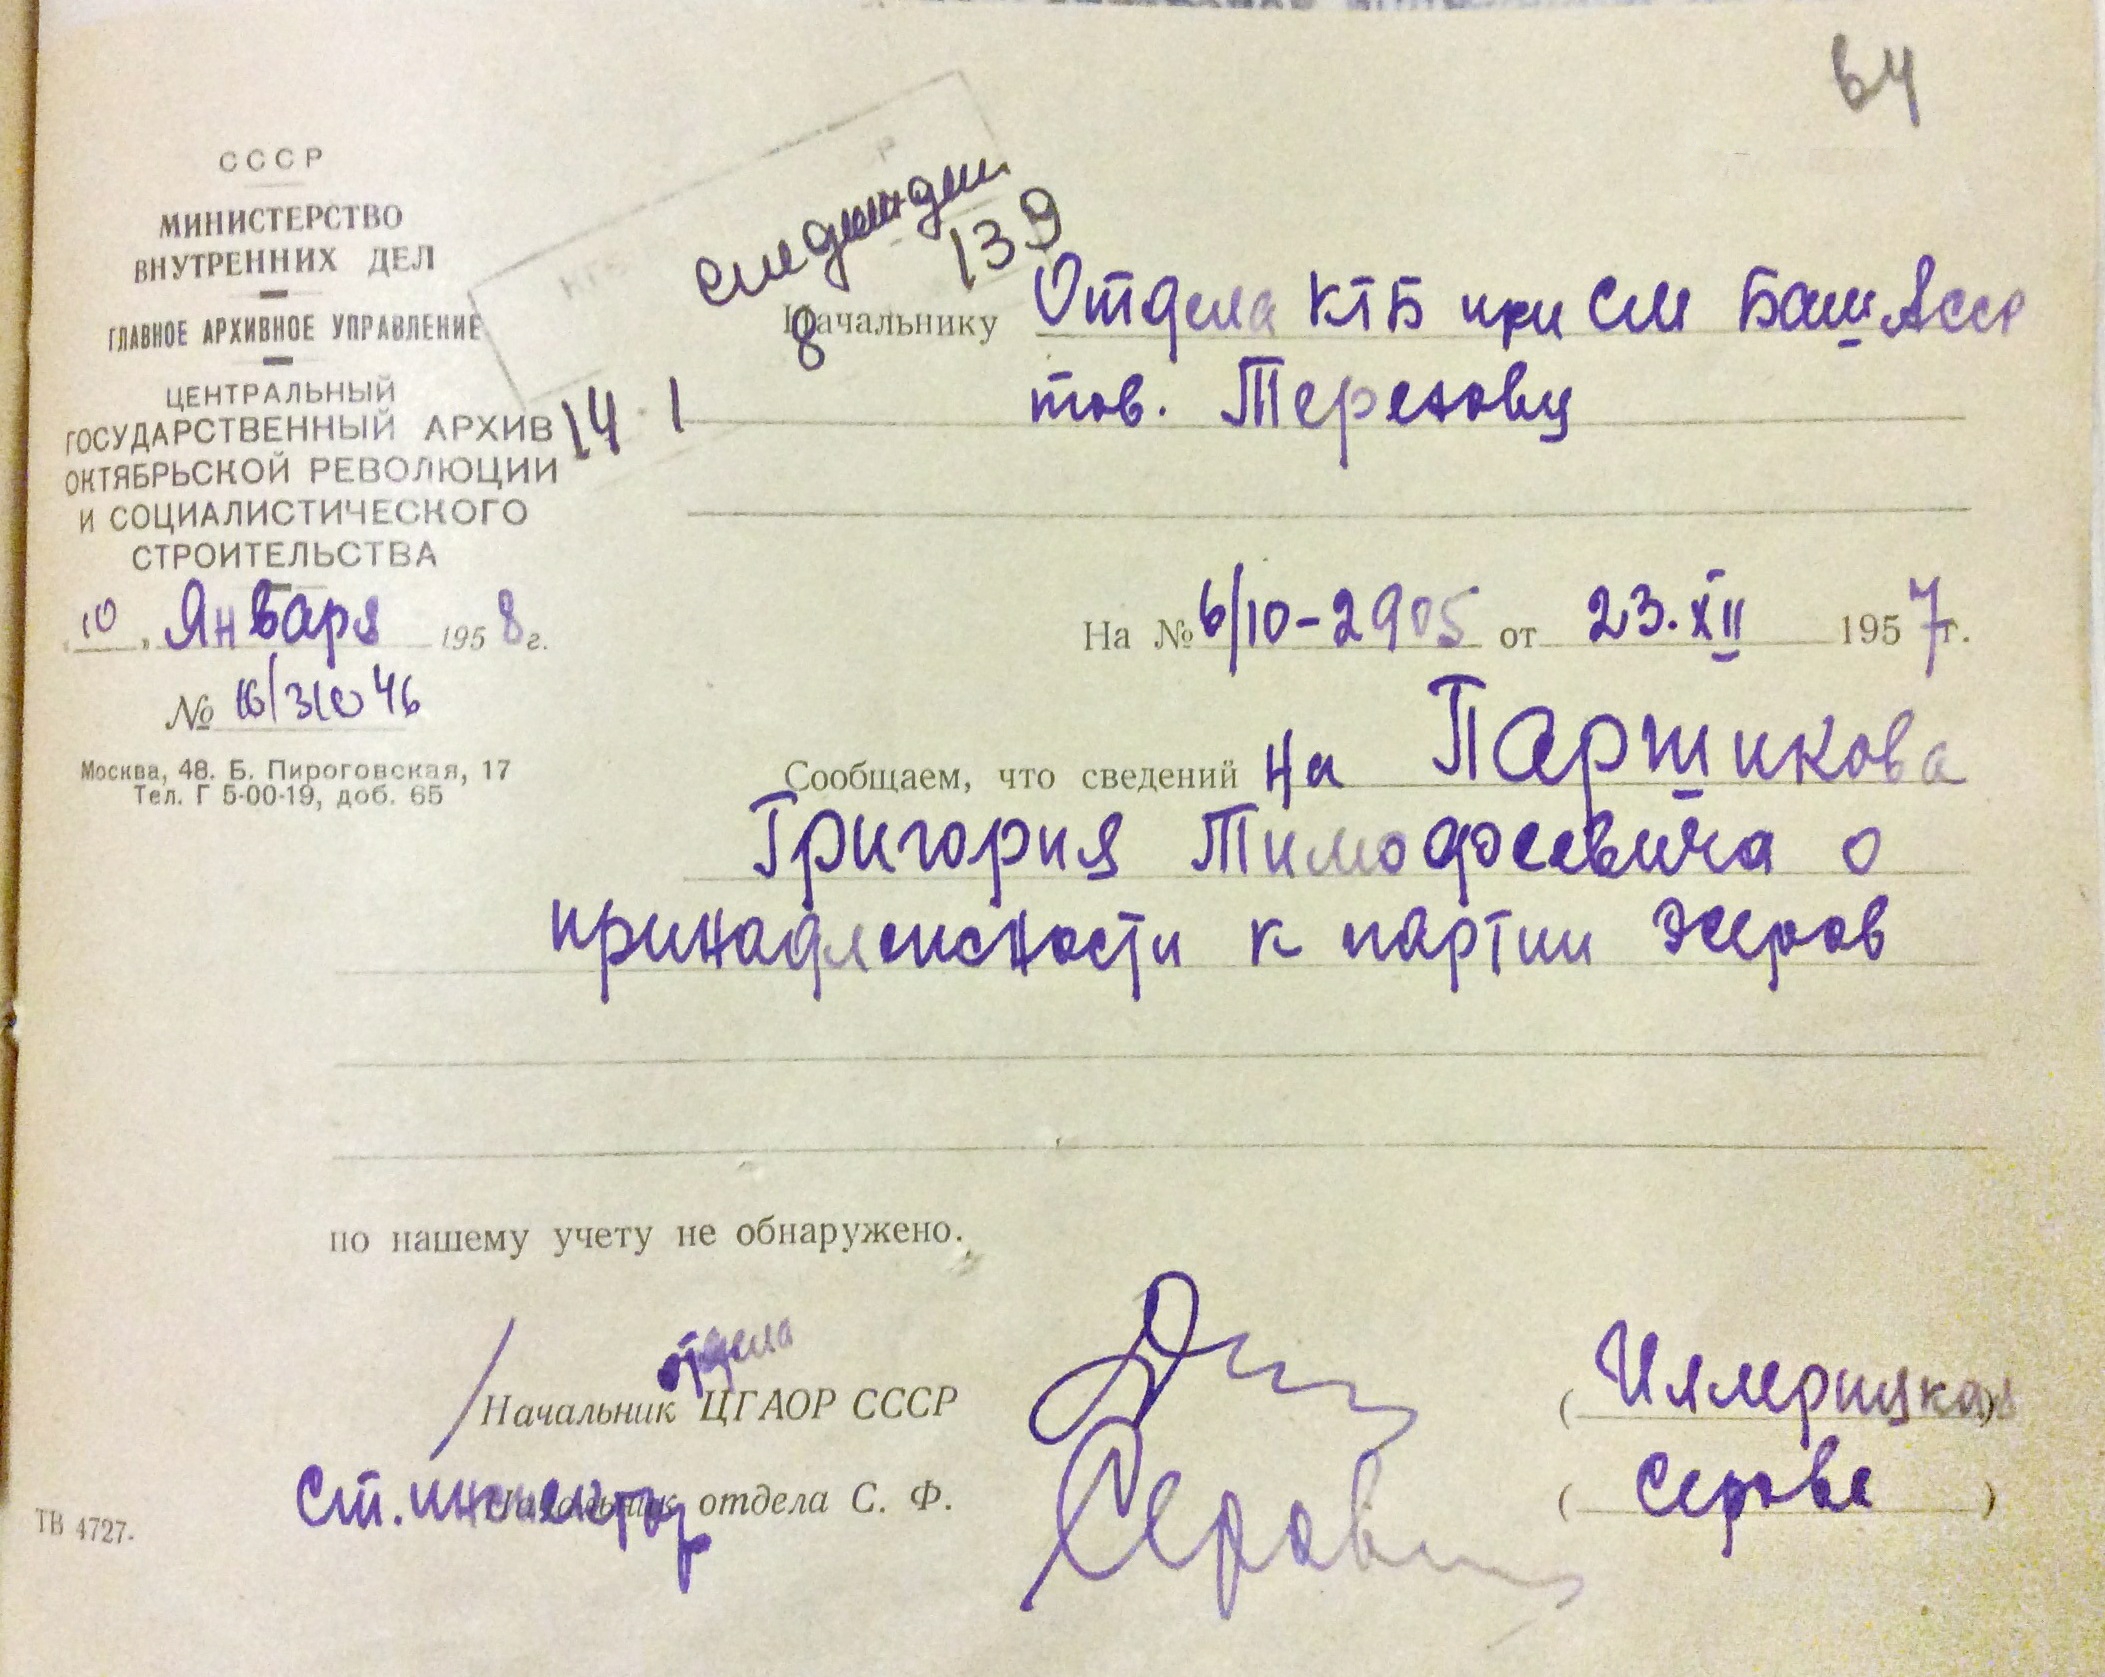 64
СССР
МИНИСТЕРСТВО
ВНУТРЕННИХ ДЕЛ
ГЛАВНОЕ АРХИВНОЕ УПРАВЛЕНИЕ
ЦЕНТРАЛЬНЫЙ
ГОСУДАРСТВЕННЫЙ АРХИВ
ОКТЯБРЬСКОЙ РЕВОЛЮЦИИ
И СОЦИАЛИСТИЧЕСКОГО
СТРОИТЕЛЬСТВА
10, Января 1958 г.
№ 16/31046
Москва, 48. Б. Пироговская, 17
Тел. Г 5-00-19, доб. 65
139
8
14.1
Начальнику Отдела КГБ при СМ Баш. АССР
тов. Терехову
На № 6/10-2905 от 23.XII 1957 г.
Сообщаем, что сведений на Паршикова
Григория Тимофеевича о
принадлежности к партии эсеров
по нашему учету не обнаружено.
отдела
Начальник ЦГАОР СССР
Ст. инспектор отдела С. Ф. (Серова)
ТВ 4727.